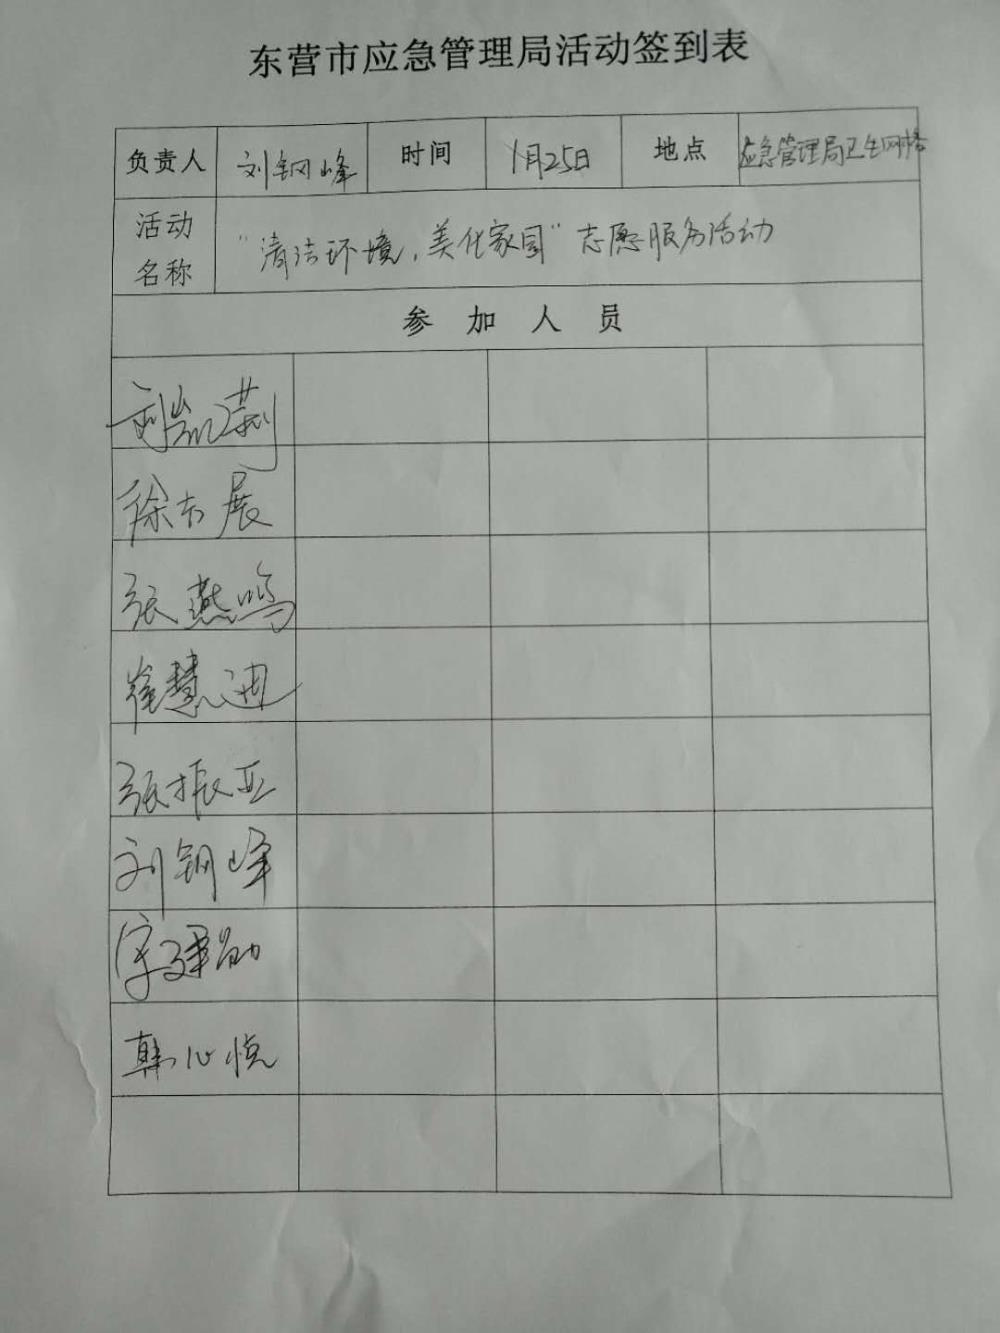 东营市应急管理局活动签到表
负责人 刘钢峰 时间 1月25日 地点 应急管理局卫生网格
活动名称 “清洁环境，美化家园”志愿服务活动
参加人员
刘凯莉
徐志展
张燕鸣
崔慧迪
张振亚
刘钢峰
韩心悦